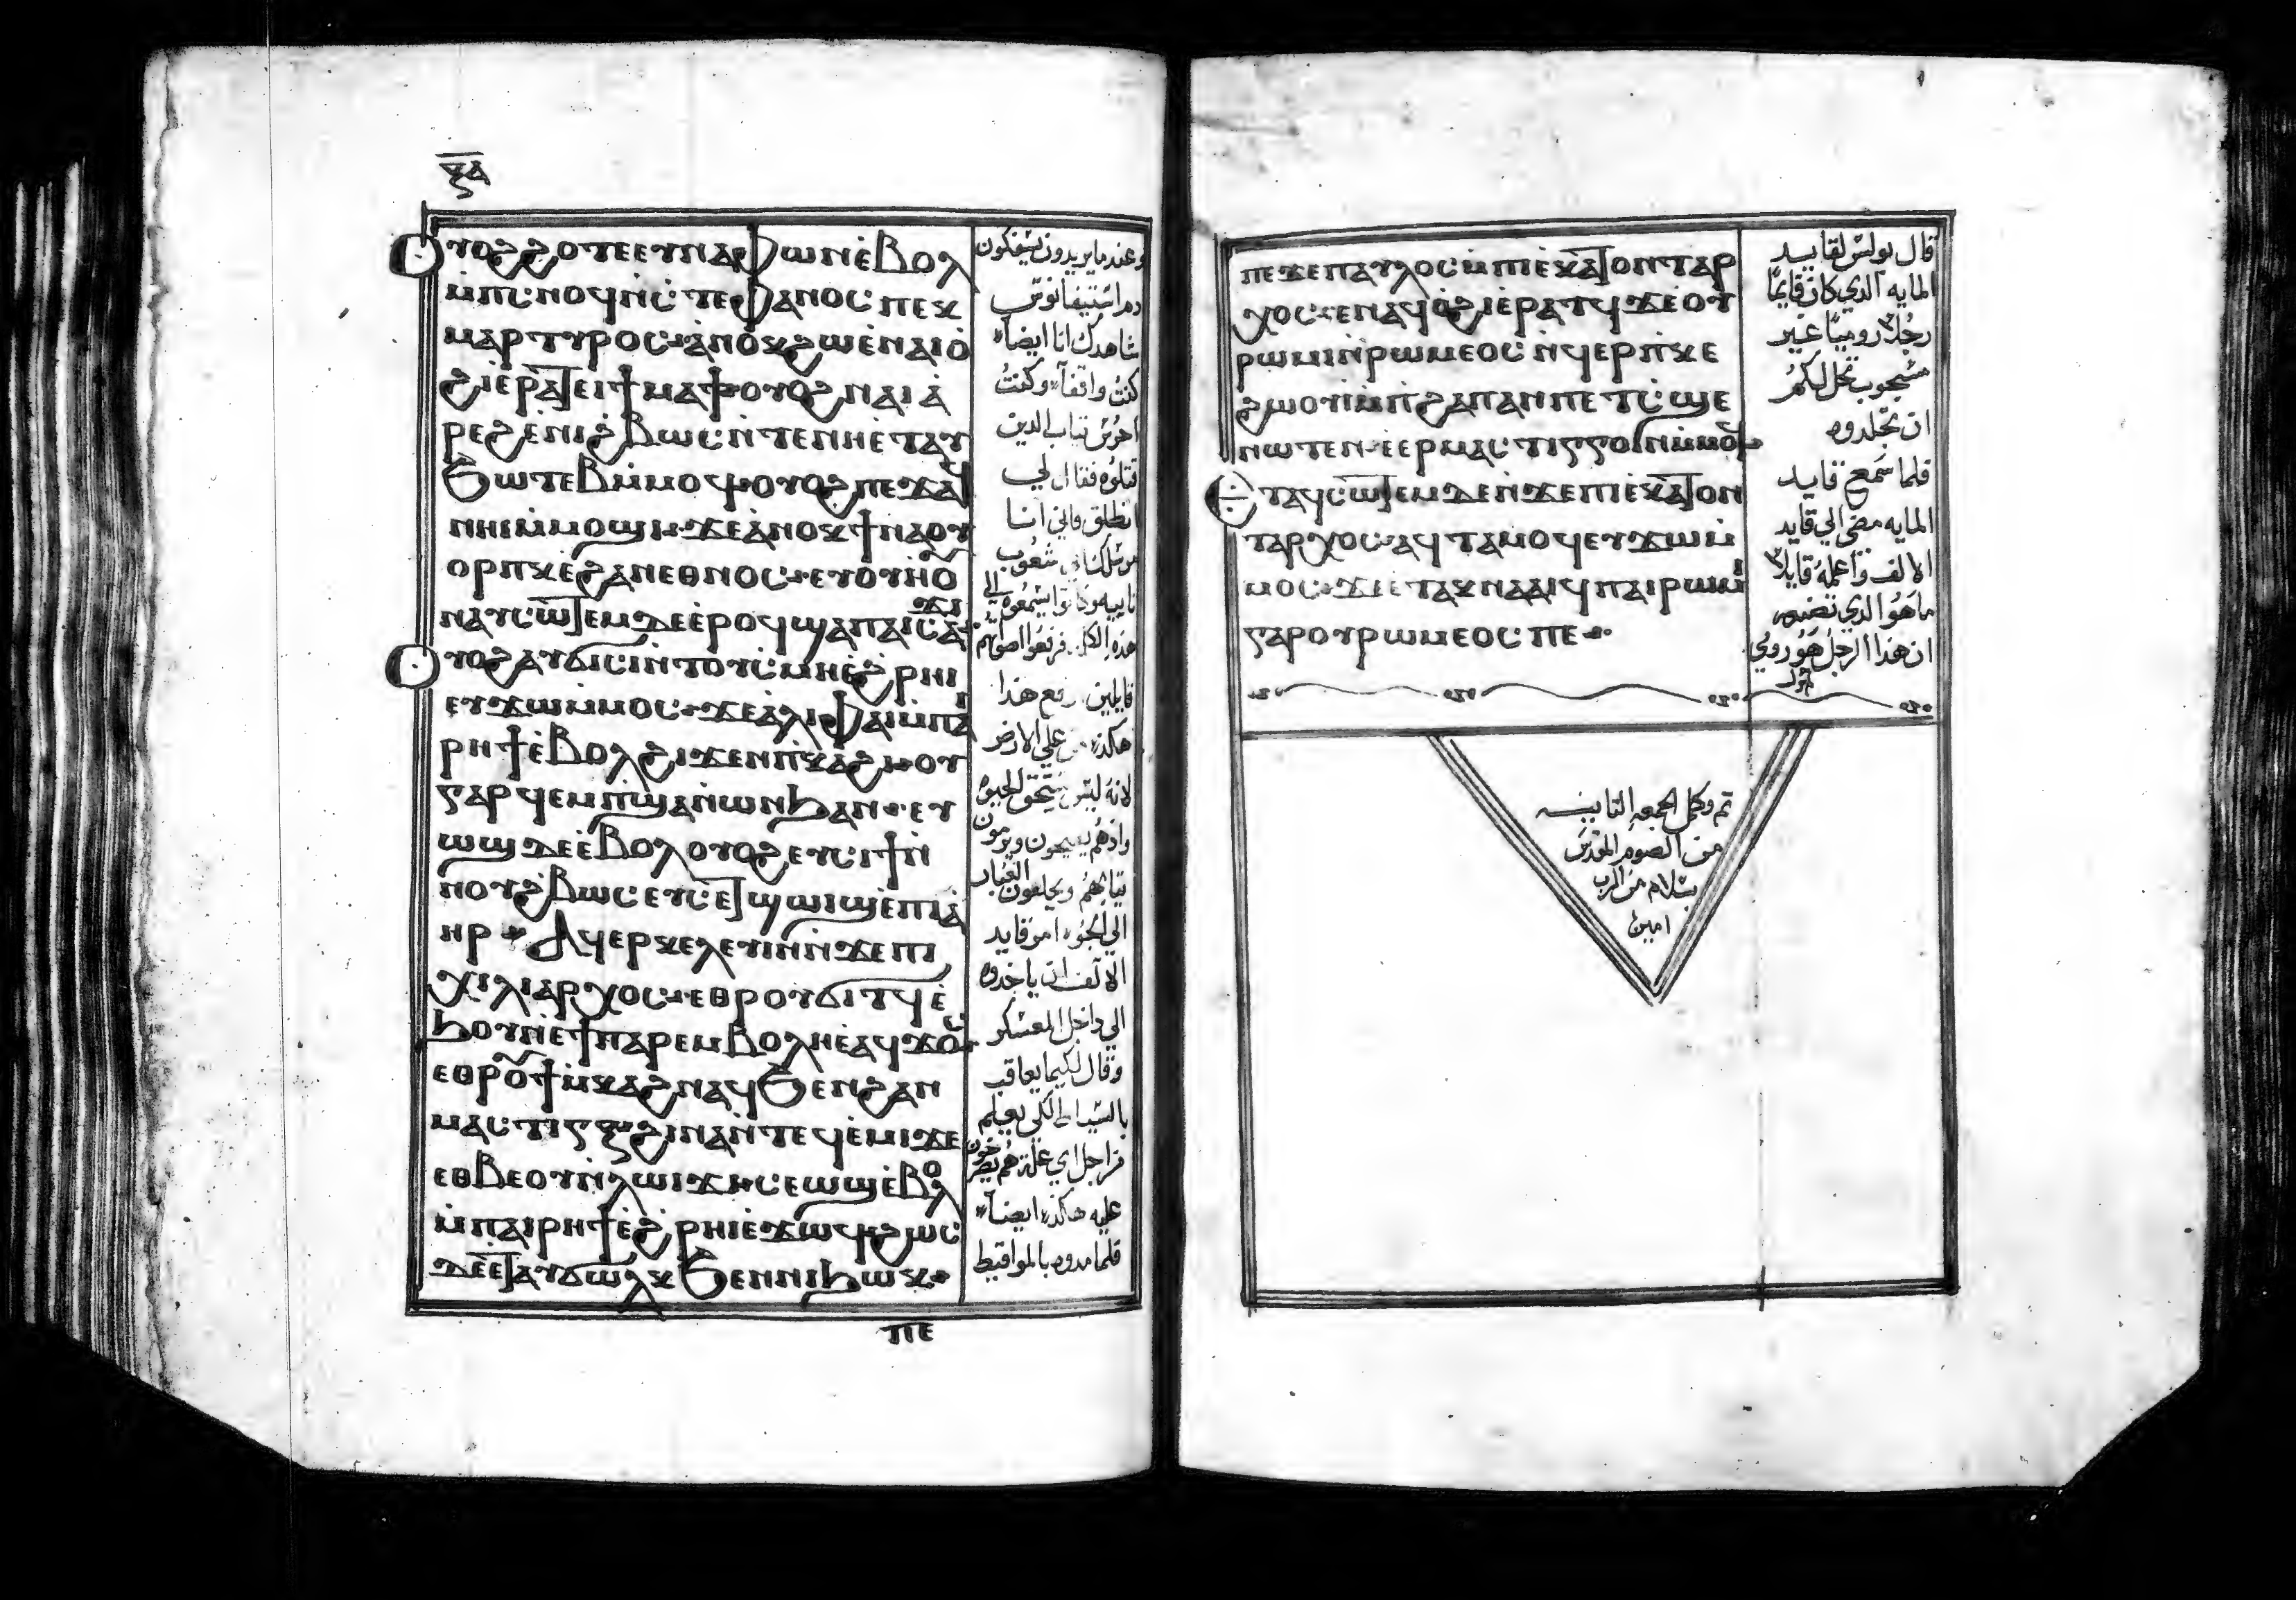 ⲝⲁ
Ⲟⲩⲟϩ ϩⲟⲧⲉ ⲉⲩⲛⲁⲫⲱⲛ ⲉ̀ⲃⲟⲗ
ⲙ̀ⲡⲥⲛⲟϥ ⲛ̀ⲥⲧⲉⲫⲁⲛⲟⲥ ⲡⲉⲕ
ⲙⲁⲣⲧⲩⲣⲟⲥ ⲁ̀ⲛⲟⲕ ϩⲱ ⲉ̀ⲛⲁⲓⲟ̀
ϩⲓ ⲉ̀ⲣⲁⲧ ⲉⲓϯⲙⲁϯ ⲟⲩⲟϩ ⲛⲁⲓⲁ̀
ⲣⲉϩ ⲉ̀ⲛⲓϩⲃⲱⲥ ⲛ̀ⲧⲉ ⲛⲏⲉ̀ⲧⲁⲩ
ϧⲱⲧⲉⲃ ⲙ̀ⲙⲟϥ ⲟⲩⲟϩ ⲡⲉϫⲁϥ
ⲛⲏⲓ ⲙ̀ⲙⲟϣⲓ ϫⲉ ⲁ̀ⲛⲟⲕ ϯⲛⲁⲟⲩ
ⲟⲣⲡⲕ ⲉ̀ϩⲁⲛⲉⲑⲛⲟⲥ ⲉⲩⲟⲩⲏⲟⲩ
ⲛⲁⲩⲥⲱⲧⲉⲙ ⲇⲉ ⲉ̀ⲣⲟϥ ϣⲁ ⲡⲁⲓⲥⲁϫⲓ
Ⲟⲩⲟϩ ⲁⲩϭⲓⲥⲓ ⲛ̀ⲧⲟⲩⲥⲙⲏ ⲉ̀ϩⲣⲏⲓ
ⲉⲩϫⲱ ⲙ̀ⲙⲟⲥ ϫⲉ ⲁ̀ⲗⲓ ⲫⲁⲓ ⲙ̀ⲡⲁⲓ
ⲣⲏϯ ⲉ̀ⲃⲟⲗ ϩⲓϫⲉⲛ ⲡ̀ⲕⲁϩⲓ ⲟⲩ
ⲅⲁⲣ ϥⲉⲙⲡ̀ϣⲁ ⲛ̀ⲱⲛϧ ⲁⲛ ⲉⲩ
ⲱϣ ⲇⲉ ⲉ̀ⲃⲟⲗ ⲟⲩⲟϩ ⲉⲩⲥⲓϯ ⲛ̀
ⲛⲟⲩϩ̀ⲃⲱⲥ ⲉⲩⲥⲉⲧ ϣⲱⲓϣ ⲉ̀ⲡⲓⲁ̀
ⲏⲣ Ⲁϥⲉⲣⲕⲉⲗⲉⲩⲓⲛ ⲛ̀ϫⲉ ⲡⲓ
ⲭⲓⲗⲓⲁⲣⲭⲟⲥ ⲉⲑⲣⲟⲩϭⲓⲧϥ ⲉ̀
ϧⲟⲩⲛ ⲉ̀ϯⲡⲁⲣⲉⲙⲃⲟⲗⲏ ⲉ̀ⲁϥϫⲟⲥ
ⲉⲑⲣⲟⲩϯⲙ̀ⲕⲁϩ ⲛⲁϥ ϧⲉⲛ ϩⲁⲛ
ⲙⲁⲥⲧⲓⲅⲝ ϩⲓⲛⲁ ⲛ̀ⲧⲉϥⲉ̀ⲙⲓ ϫⲉ
ⲉⲑⲃⲉ ⲟⲩ ⲛ̀ⲗⲱⲓϫⲓ ⲥⲉⲱϣ ⲉ̀ⲃⲟⲗ
ⲙ̀ⲡⲁⲓⲣⲏϯ ⲉ̀ϩ̀ⲣⲏⲓ ⲉ̀ϫⲱϥ ϩⲱⲥ
ⲇⲉ ⲉ̀ⲧⲁⲩϭⲱⲗⲕ ϧⲉⲛ ⲛⲓϧⲱⲕ
ⲡⲉ
وعندما يريدون يسفكون
دم استيفانوس
شاهدك انا ايضاً
كنت واقفاً وكنت
احرس تياب الدين
قتلوه فقال لي
انطلق فاني انا
مرسلك الي شعوب
هذه الكلمه فرفعوا اصواتهم
قايلين رفع هذا
هاكذا من علي الارض
لانه ليس يستحق الحيوه
واذهم يصيحون ويرمون
تيابهم ويحلعون الغبار
الي الجوه امر قايد
الالف ان ياخدوه
الي داخل المعسكر
وقال لكيما يعاقب
بالسياط لكي يعلم
من اجل اي علة هم يصرخون
عليه هاكذا ايضاً
فلما مدوه بالمواقيط
ⲡⲉϫⲉ ⲡⲁⲩⲗⲟⲥ ⲙ̀ⲡⲓⲉ̀ⲕⲁⲧⲟⲛⲧⲁⲣ
ⲭⲟⲥ ⲉⲛⲁϥⲟ̀ϩⲓ ⲉ̀ⲣⲁⲧϥ ϫⲉ ⲟⲩ
ⲣⲱⲙⲓ ⲛ̀ⲣⲱⲙⲉⲟⲥ ⲛ̀ϥⲉⲣⲡ̀ⲕⲉ
ϩⲙⲟⲩ ⲙ̀ⲡ̀ϩⲁⲡ ⲁⲛ ⲡⲉⲧⲥ̀ϣⲉ
ⲛⲱⲧⲉⲛ ⲉ̀ⲉⲣⲙⲁⲥⲧⲓⲅⲅⲟⲓⲛ ⲙ̀ⲙⲟϥ
Ⲉⲧⲁϥⲥⲱⲧⲉⲙ ⲇⲉ ⲛ̀ϫⲉ ⲡⲓⲉ̀ⲕⲁⲧⲟⲛ
ⲧⲁⲣⲭⲟⲥ ⲁϥⲧⲁⲙⲟϥ ⲉⲩϫⲱ ⲙ̀
ⲙⲟⲥ ϫⲉ ⲉⲧⲁⲕⲛⲁⲁⲓϥ ⲡⲁⲓⲣⲱⲙⲓ
ⲅⲁⲣ ⲟⲩⲣⲱⲙⲉⲟⲥ ⲡⲉ
قال بولس لقايد
المايه الدي كان قايمًا
رجلاً روميًا غير
مسجوب تحل لكم
ان تجلدوه
فلما سمع قايد
المايه مضي الي قايد
الالف واعمله قايلاً
ما هو الدي تصنعه
ان هذا الرجل هو رومي
تم وكمل الجمعه التانيه
من الصوم المقدس
بسلام من الرب
امين